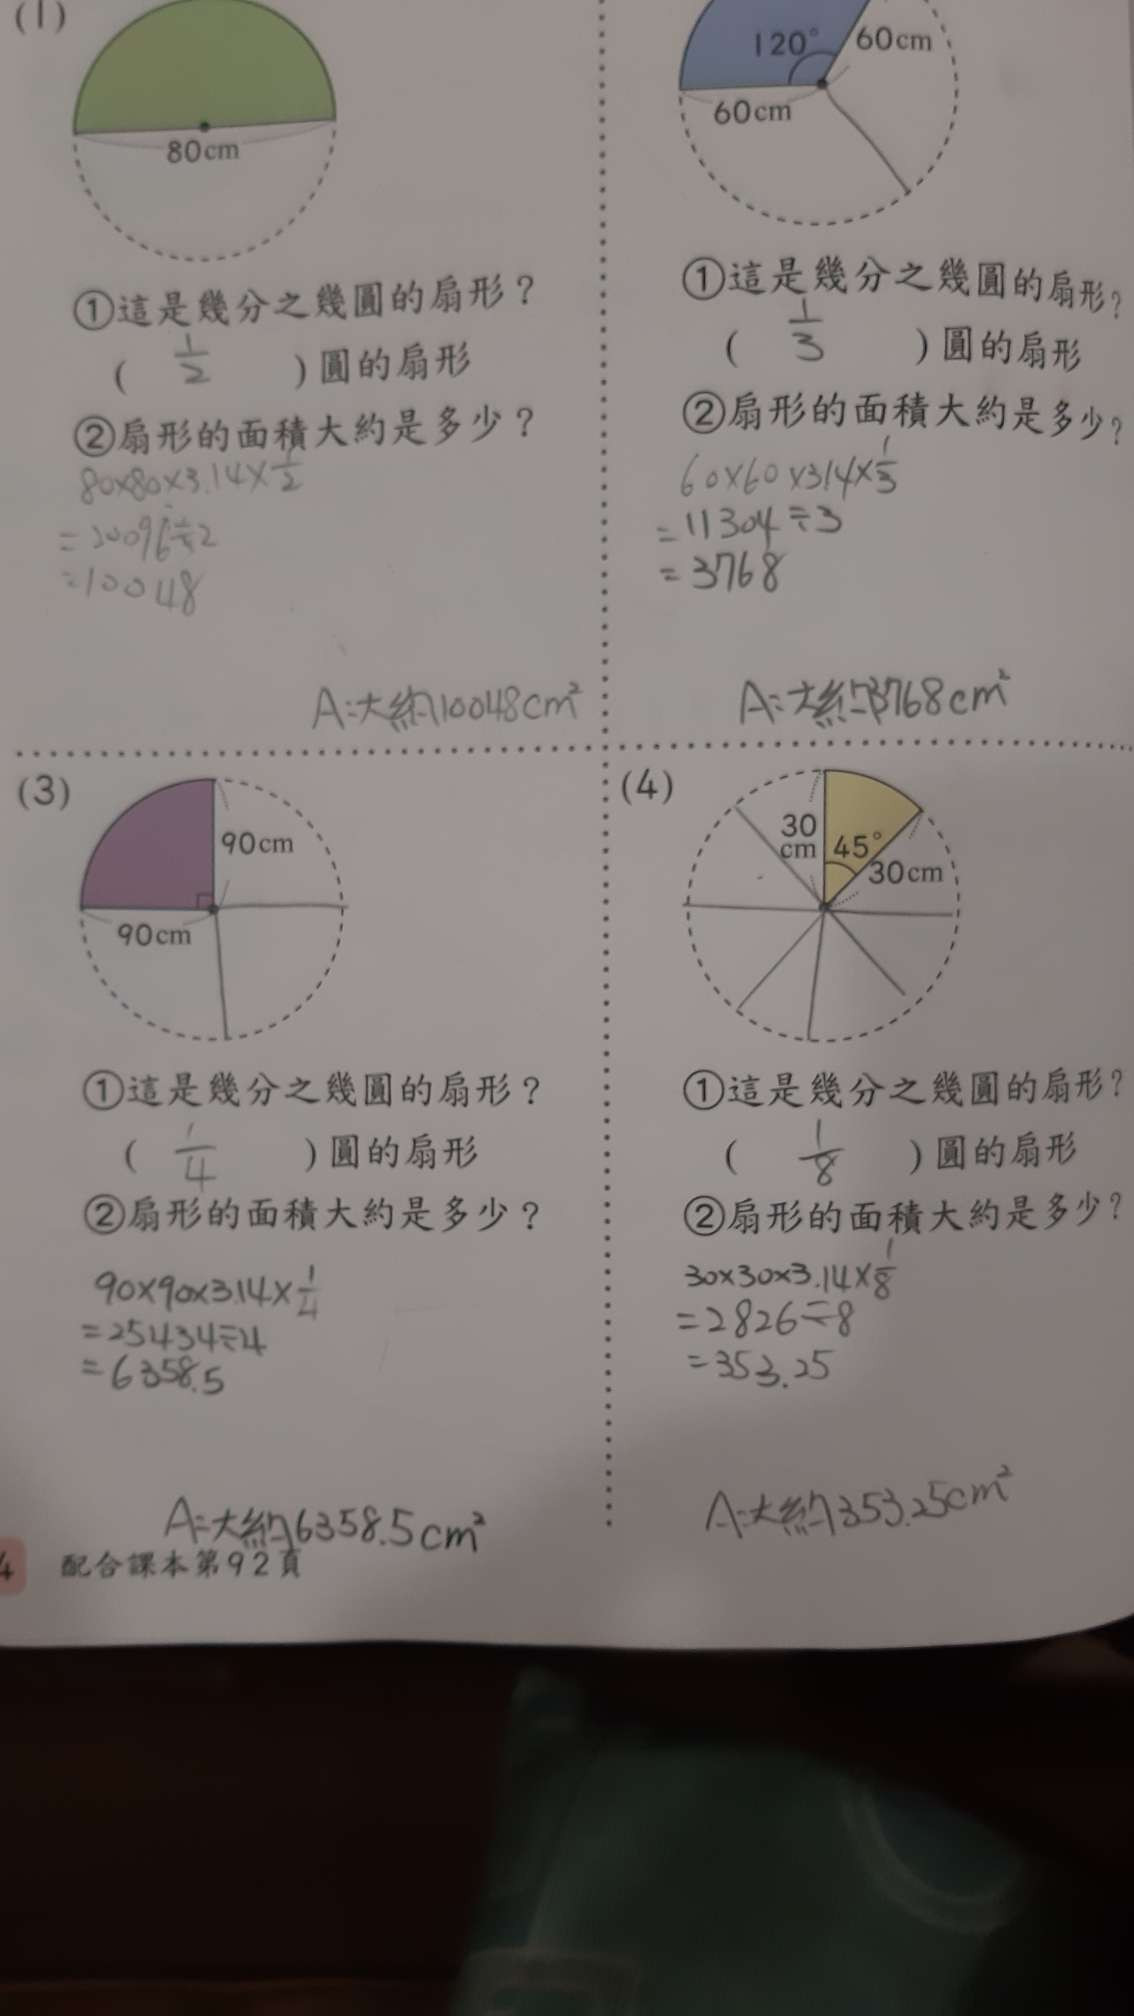 (1)
80cm
①這是幾分之幾圓的扇形？
( 1/2 )圓的扇形
②扇形的面積大約是多少？
80×80×3.14×1/2
=20096÷2
=10048
A:大約10048cm²
120°
60cm
60cm
①這是幾分之幾圓的扇形？
( 1/3 )圓的扇形
②扇形的面積大約是多少？
60×60×3.14×1/3
=11304÷3
=3768
A:大約3768cm²
(3)
90cm
90cm
①這是幾分之幾圓的扇形？
( 1/4 )圓的扇形
②扇形的面積大約是多少？
90×90×3.14×1/4
=25434÷4
=6358.5
A:大約6358.5cm²
(4)
30
cm
45°
30cm
①這是幾分之幾圓的扇形？
( 1/8 )圓的扇形
②扇形的面積大約是多少？
30×30×3.14×1/8
=2826÷8
=353.25
A:大約353.25cm²
4 配合課本第92頁